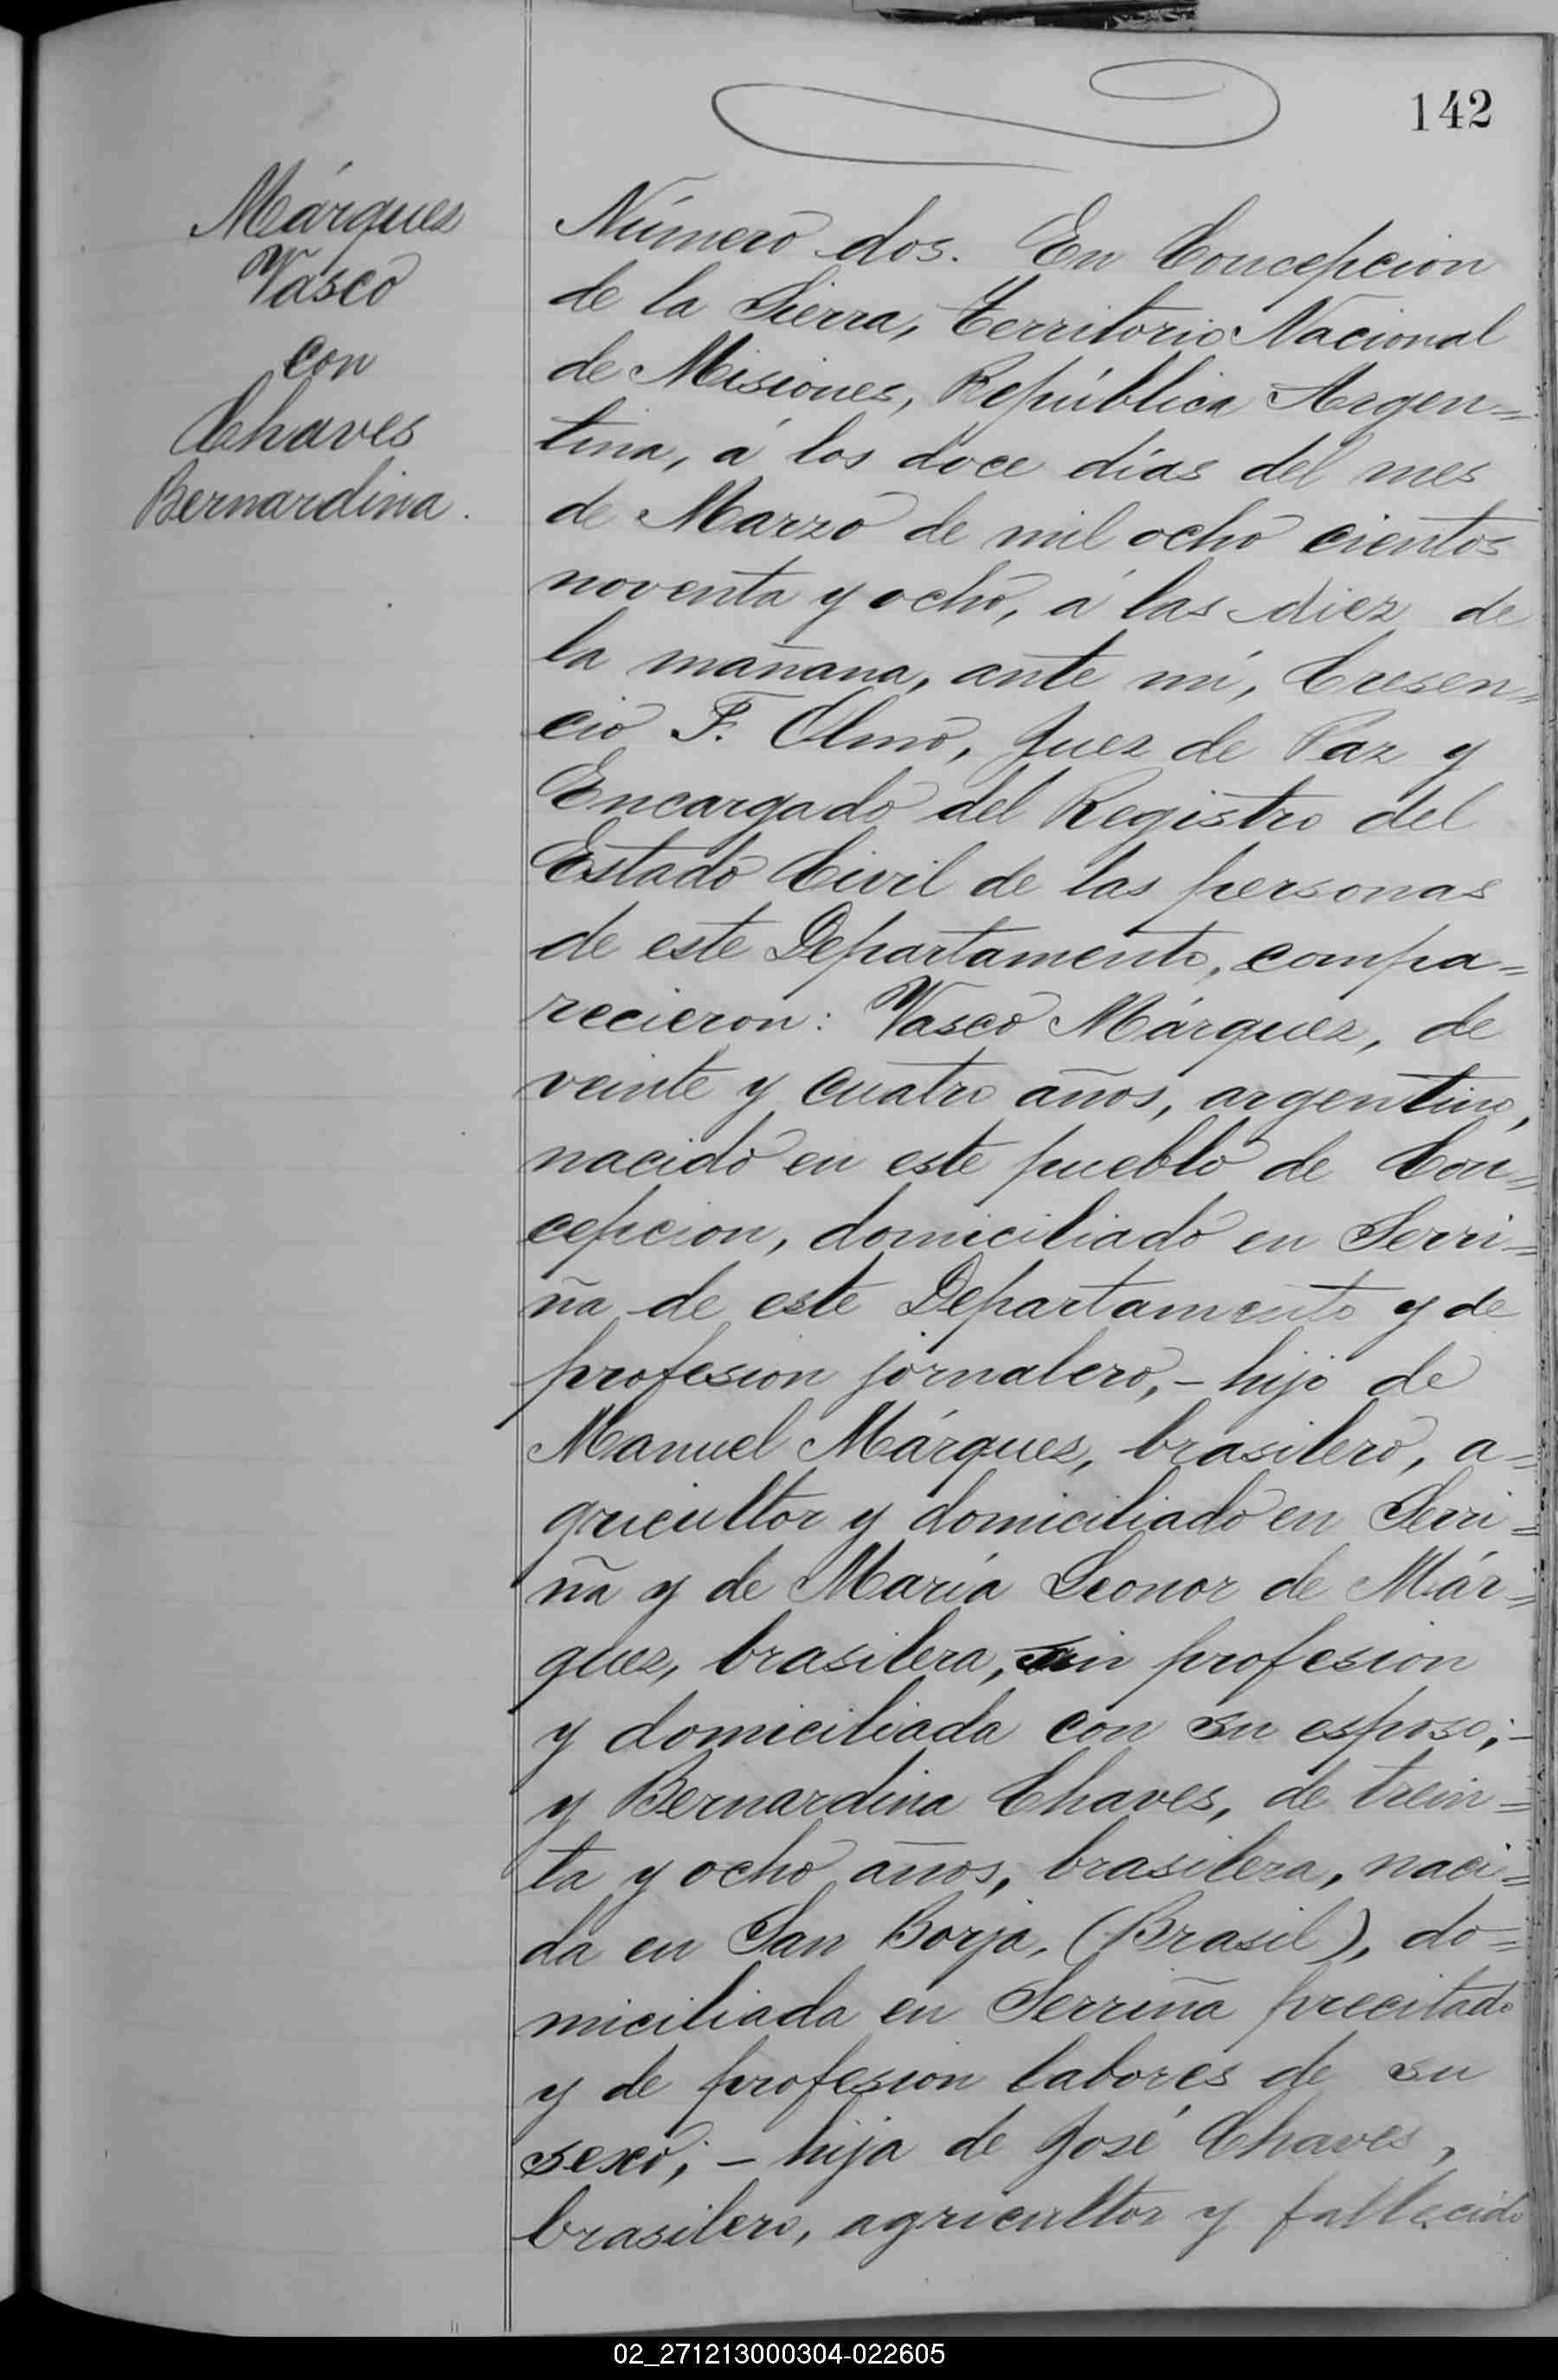 142
Márquez
Vasco
con
Chaves
Bernardina.
Número dos. En Concepcion
de la Sierra, Territorio Nacional
de Misiones, República Argen=
tina, á los doce días del mes
de Marzo de mil ocho cientos
noventa y ocho, á las diez de
la mañana, ante mí, Cresen=
cio F. Olmo, Juez de Paz y
Encargado del Registro del
Estado Civil de las personas
de este Departamento, compa=
recieron: Vasco Márquez, de
veinte y cuatro años, argentino,
nacido en este pueblo de Con=
cepcion, domiciliado en Serri=
ña de este Departamento y de
profesion jornalero,- hijo de
Manuel Márquez, brasilero, a=
gricultor y domiciliado en Serri=
ña y de María Leonor de Már=
quez, brasilera, sin profesion
y domiciliada con su esposo;-
y Bernardina Chaves, de trein=
ta y ocho años, brasilera, naci=
da en San Borja, (Brasil), do=
miciliada en Serriña precitado
y de profesion labores de su
sexo;- hija de José Chaves,
brasilero, agricultor y fallecido
02_271213000304-022605